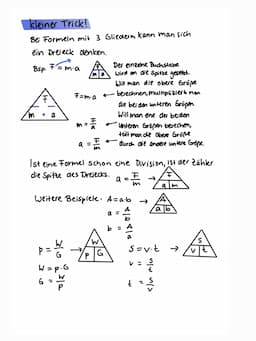 kleiner Trick!
Bei Formeln mit 3 Gliedern kann man sich
ein Dreieck denken.
Bsp. F = m·a
F
m a
Der einzelne Buchstabe
wird an die Spitze gesetzt.
Will man die obere Größe
berechnen, multipliziert man
die beiden unteren Größen
F = m·a
F
m · a
Will man eine der beiden
unteren Größen berechnen,
teilt man die obere Größe
durch die andere untere Größe.
m = F/a
a = F/m
Ist eine Formel schon eine Division, ist der Zähler
die Spitze des Dreiecks. a = F/m →
F
a m
Weitere Beispiele: A = a·b →
A
a b
a = A/b
b = A/a
p = W/G →
W
p G
W = p·G
G = W/p
S = v·t →
S
v t
v = S/t
t = S/v